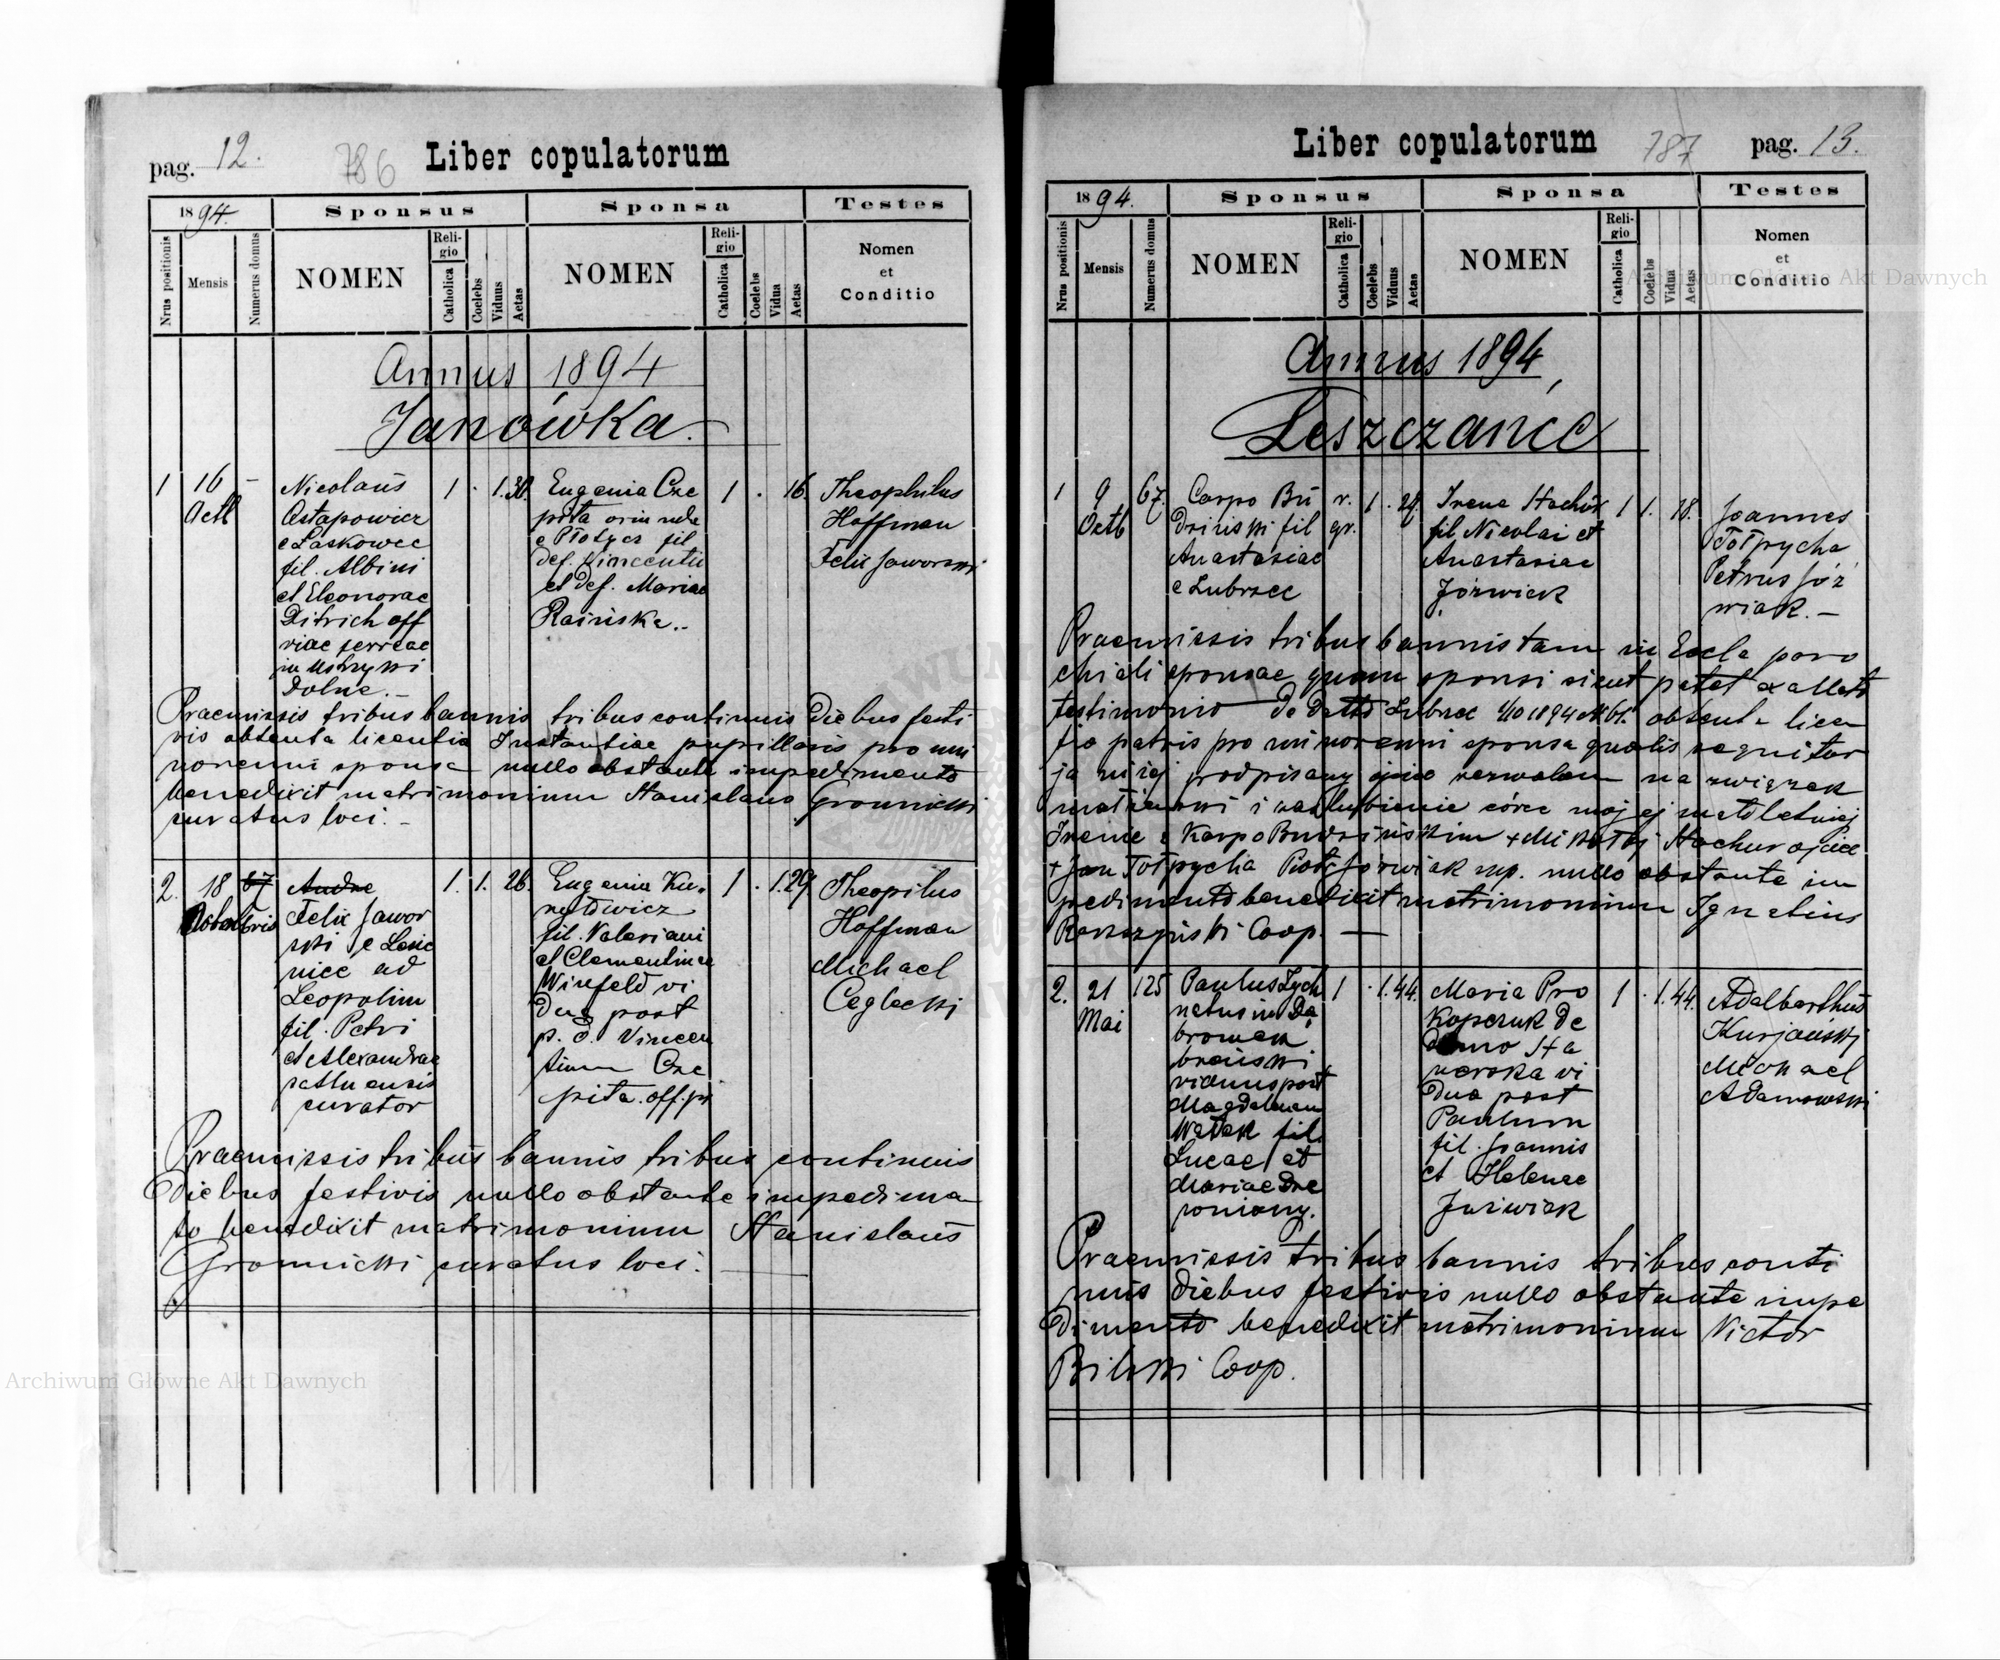 pag. 12.
786
Liber copulatorum
1894.
Sponsus
Sponsa
Testes
Nrus positionis
Mensis
Numerus domus
NOMEN
Religio
Catholica
Coelebs
Viduus
Aetas
NOMEN
Religio
Catholica
Coelebs
Vidua
Aetas
Nomen
et
Conditio
Annus 1894
Janówka.
1
16
Octb
-
Nicolaus
Ostapowicz
e Laskowce
fil. Albini
et Eleonorae
Ditrich off
viae ferreae
in Ustrzyki
Dolne.-
1 . 1. 30.
Eugenia Cze
pita oriunda
e Płotycz fil
def. Vincentii
et def. Mariae
1 . 16.
Theophilus
Hoffman
Felix Jaworski
Praemissis tribus bannis tribus continuis diebus festi
vis obtenta licentia Instantiae pupillaris pro mi
norenni sponsa nullo obstante impedimento
benedixit matrimonium Stanislaus Gromnicki
curatus loci.-
2.
18
67
Octobris
Andre
Felix Jawor
ski e
nice ad
Leopolim
fil. Petri
et Alexandrae
curator
1. 1. 26.
Eugenia Ku.
fil. Valeriani
et Clementinae
Winfeld vi
dua post
p. d. Vincen
tium Cze
pita. off. pr
1 . 1. 29
Theopilus
Hoffman
Michael
Ceglecki
Praemissis tribus bannis tribus continuis
diebus festivis nullo obstante impedimen
to benedixit matrimonium Stanislaus
Gromnicki curatus loci.
Liber copulatorum
787
pag. 13.
1894.
Sponsus
Sponsa
Testes
Nrus positionis
Mensis
Numerus domus
NOMEN
Religio
Catholica
Coelebs
Viduus
Aetas
NOMEN
Religio
Catholica
Coelebs
Vidua
Aetas
Nomen
et
Conditio
Annus 1894
Leszczańce
1
9
Octb
67.
Carpo Bu
dziński fil
Anastasiae
r.
gr.
1 . 24.
Irena Stachur
fil. Nicolai et
Anastasiae
Józwiak
1 1. 18.
Joannes
Tołpycha
Petrus Józ
wiak.-
Praemissis tribus bannis tam in Eccla paro
chiali sponsae quam sponsi sicut patet ex allato
testimonio de dato 1/10 1894 obtenta licen
tia patris pro minorenni sponsa qualis sequitur
ja niżej podpisany ojciec zezwalam na związek
małżeński i zaślubienie córce mojej małoletniej
Irenie z Karpo Budzińskim + Mikołaj Stachur ojciec
+ Jan Tołpycha Piotr Józwiak mp. nullo obstante im
pedimento benedixit matrimonium Ignatius
Coop.
2.
21
Mai
125
Paulus
viduus post
Magdalenam
fil.
Lucae et
Mariae
1 . 1. 44.
Maria Pro
kopczuk de
domo
vi
dua post
Paulum
fil. Joannis
et Helenae
1 . 1. 44.
Adalberthus
Kurjański
Michael
Adamowski
Praemissis tribus bannis tribus conti
nuis diebus festivis nullo obstante impe
dimento benedixit matrimonium Victor
Bilski Coop.
Archiwum Główne Akt Dawnych
Archiwum Główne Akt Dawnych